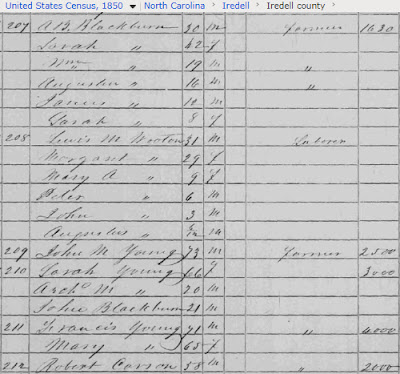 United States Census, 1850 North Carolina Iredell Iredell county
207 A B Blackburn 50 m Farmer 1630
Sarah " 42 f
Wm " 19 m "
Augustus " 16 m "
James " 10 m
Sarah " 8 f
208 Lewis M 31 m Laborer
Margaret " 29 f
Mary A " 9 f
Peter " 6 m
John " 3 m
Augustus " m
209 John M Young 73 m Farmer 2500
210 Sarah Young 66 f 3000
Archd M " 20 m
John Blackburn 21 m
211 Francis Young 71 m " 4000
Mary " 65 f
212 Robert Carson 58 m " 2000